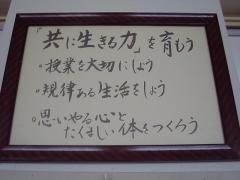 「共に生きる力」を育もう
。授業を大切にしよう
。規律ある生活をしよう
。思いやる心と
たくましい体をつくろう